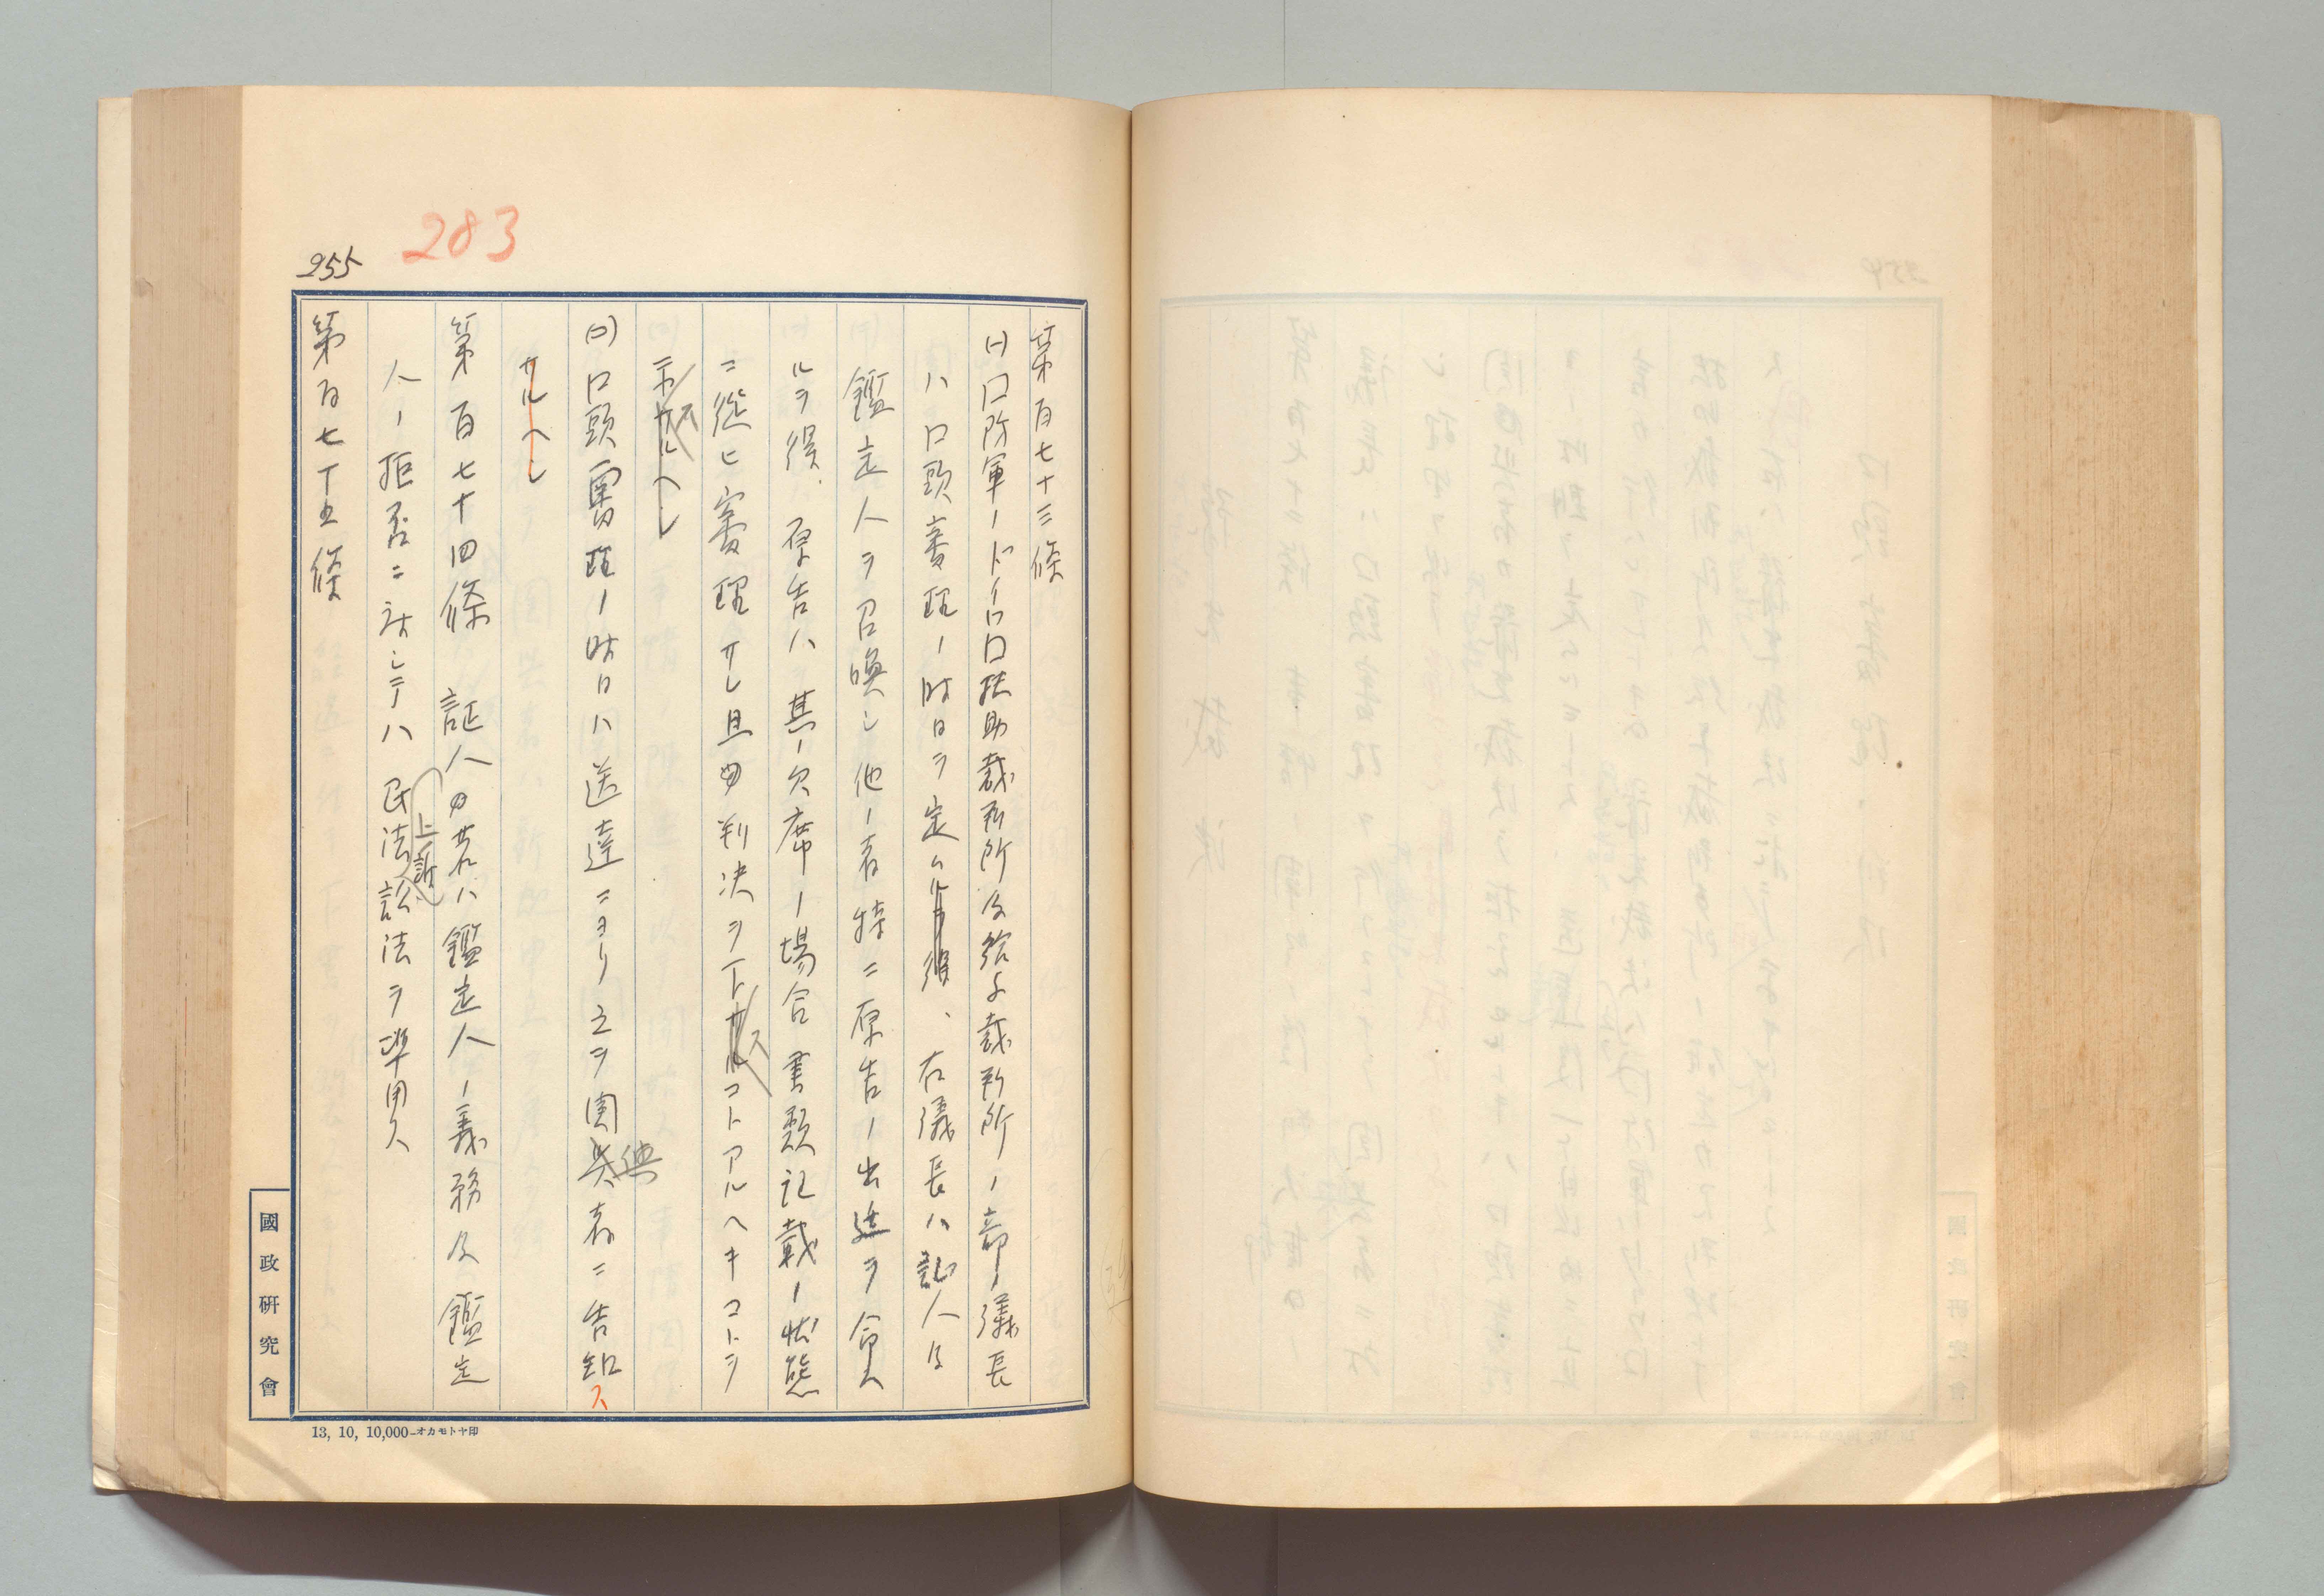 283
255
第百七十三條
(一)口防軍ノ口扶助裁判所及給与裁判所ノ部ノ議長
ハ口頭審理ノ時日ヲ定ム、右議長ハ証人及
鑑定人ヲ召喚シ他ノ者特ニ原告ノ出廷ヲ命ス
ルヲ得、原告ハ其ノ欠席ノ場合書類記載ノ状態
ニ從ヒ審理サレ且ツ判決ヲ下サルルコトアルヘキコトヲ
示サルヘシ
(二)口頭審理ノ時日ハ送達ニヨリ之ヲ関與者ニ告知ス
サルヘシ
第百七十四條 証人又ハ鑑定人ノ義務及鑑定
人ノ拒否ニ対シテハ民法上ノ訴訟法ヲ準用ス
第百七十五條
國政研究會
13, 10, 10,000—オカモトヤ印